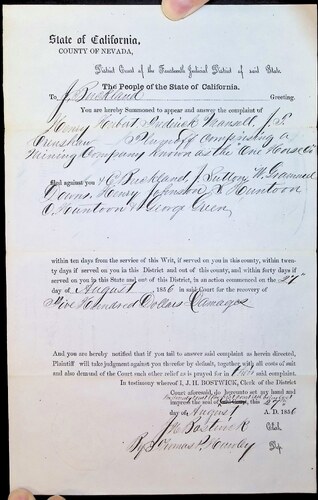 State of California,
COUNTY OF NEVADA,
District Court of the Fourteenth Judicial District of said State.
The People of the State of California.
To J. Brickland Greeting.
You are hereby Summoned to appear and answer the complaint of
Henry Frederick
Plaintiff Composing a
Mining Company Known as the One Horse Co
filed against you & E. Brickland J. Sutton W.
Downs, Henry Johnson, Huntoon
O. Huntoon & George Green,
within ten days from the service of this Writ, if served on you in this county, within twen-
ty days if served on you in this District and out of this county, and within forty days if
served on you in this State and out of this District, in an action commenced on the 27th
day of August 1856 in said Court for the recovery of
Five Hundred Dollars Damages
And you are hereby notified that if you fail to answer said complaint as herein directed,
Plaintiff will take judgment against you therefor by default, together with all costs of suit
and also demand of the Court such other relief as is prayed for in said complaint.
In testimony whereof I, J. H. BOSTWICK, Clerk of the District
Court aforesaid, do hereunto set my hand and
impress the seal of this 27th
day of August A. D. 1856
J H Bostwick Clerk.
By Thomas P. Dep.